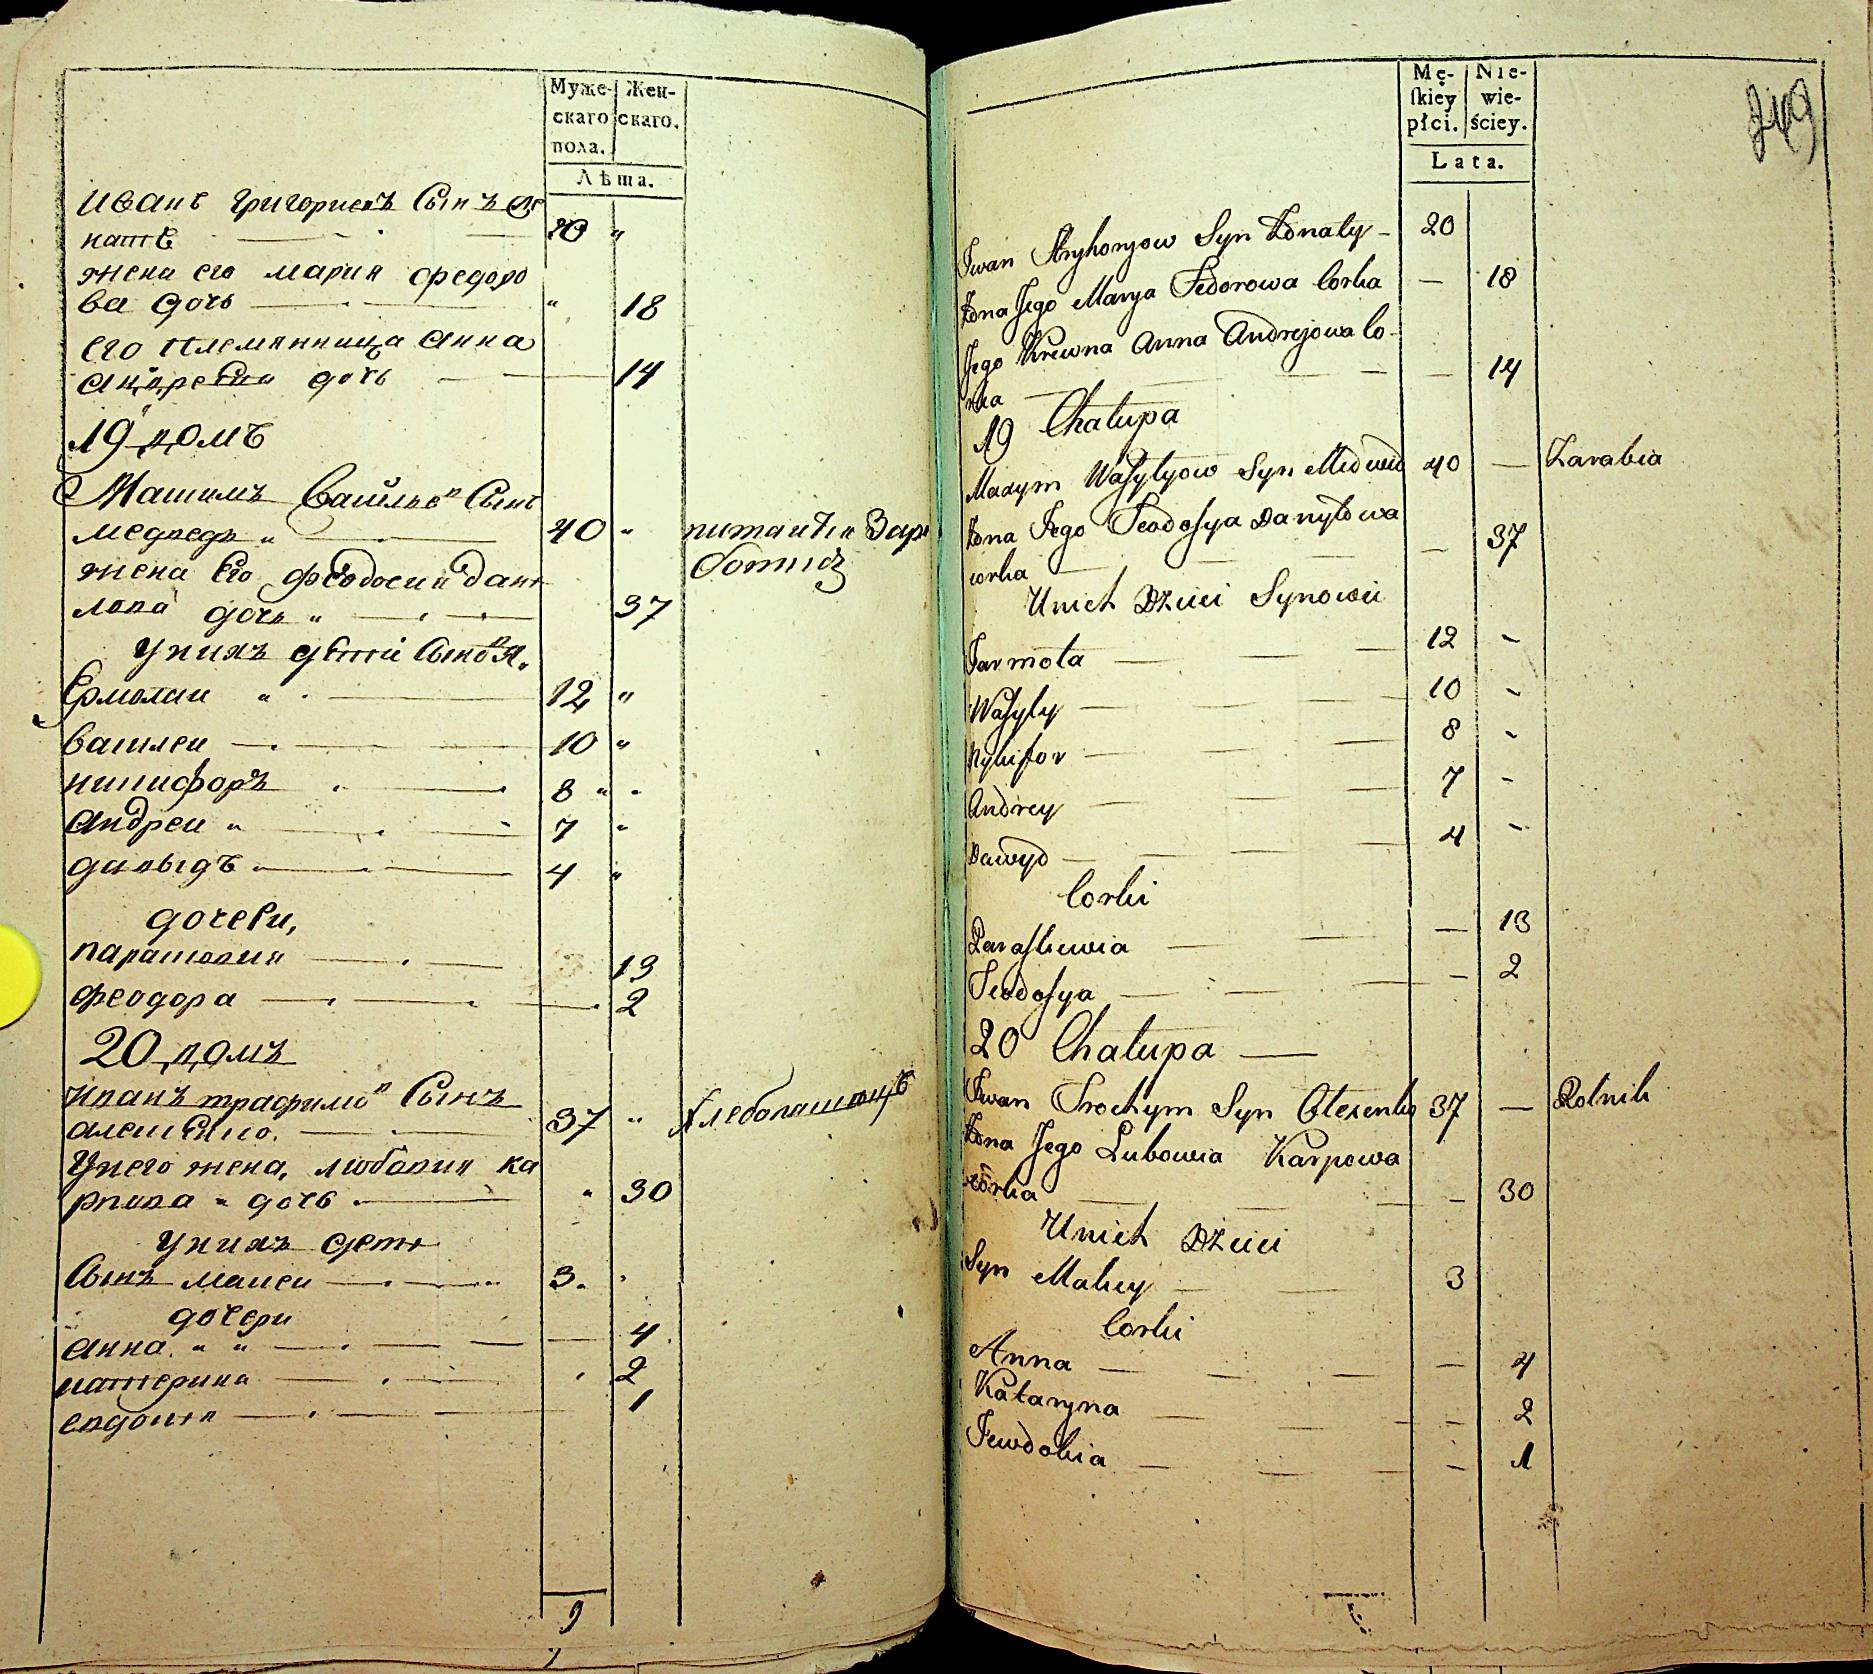 Муже- Жен-
скаго скаго.
пола.
Лѣта.
Иванъ Григориевъ Сынъ
натѣ 20 "
жена его мария федоро
ва дочь " 18
его племянница анна
андреева дочь 14
19 домъ
Машимъ Василье<sup>в</sup> Сынъ
медведь " 40 " питаитса Зара
жена Его феодосия дани ботком
лова дочь " 37
У нихъ дѣтти Сыновя.
Ермолаи " 12 "
василеи 10 "
никифоръ 8 "
андреи " 7 "
давыдъ 4 "
дочери,
парасковия 13
феодора 2
20 домъ
иванъ трафимо<sup>в</sup> Сынъ
алексенко. 37 " хлебопашецъ
У него жена, любовия ка
рпова " дочь " 30
У нихъ дети
Сынъ макеи 3.
дочери
анна " " 4
катерина 2
евдокия 1
9
Mę- Nie-
skiey wie-
płci. ściey.
Lata.
249
Iwan Hryhoryow Syn Konaty 20
Żona Jego Marya Fedorowa Corka — 18
Jego Krewna Anna Andrejowa Co-
rka — 14
19 Chałupa
Maxym Wasylyow Syn Medwid 40 — Zarabia
Żona Jego Teodosya Danyłowa
corka — 37
U nich Dzieci Synowie
Jarmoła 12 -
Wasyly 10 -
Nykifor 8 -
Andrey 7 -
Dawyd 4 -
Corki
Paraskiewia — 13
Teodosya — 2
20 Chałupa —
Iwan Trochym Syn Olexenko 37 — Rolnik
Żona Jego Lubowia Karpowa
córka — 30
U nich Dzieci
Syn Makiey 3
Corki
Anna — 4
Kataryna — 2
Jewdokia — 1